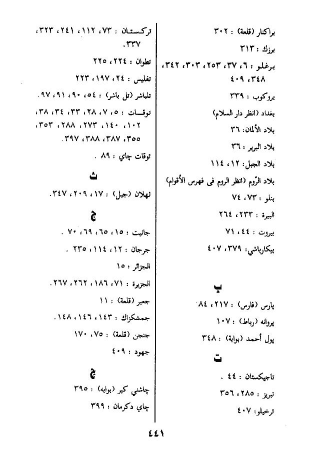 براكنار (قلعة) : ٣٠٢
برزك : ٣١٣
برغلو : ٦، ٣٧، ٢٥٣، ٣٠٣، ٣٤٢،
٣٤٨، ٤٠٩
بروكوب : ٣٣٩
بغداد (انظر دار السلام)
بلاد الألمان: ٣٦
بلاد البربر : ٣٦
بلاد الجبل: ١٢، ١١٤
بلاد الرّوم (انظر الروم فى فهرس الأقوام)
بنلو : ٧٣، ٧٤
البيرة : ٢٣٣، ٢٦٤
بيروت : ٤٤، ٧١
بيكارباشي: ٣٧٩، ٤٠٧
پ
پارس (فارس) : ٢١٧، ٨٤
پروانه (رباط): ١٠٧
پول أحمد (بوابة) : ٣٤٨
ت
تاجيكستان : ٤٤ .
تبريز : ٢٨٥، ٣٥٦
ترخيلو: ٤٠٧
تركستان : ٧٣، ١١٢، ٢٤١، ٣٢٣،
٣٣٧.
تطوان : ٢٢٤، ٢٢٥
تفليس : ٢٤، ١٩٧، ٢٢٣
تلباشر (تل باشر) : ٥٤، ٩٠، ٩١، ٩٧.
توقسات : ٥، ٧، ٢٨، ٣٣، ٣٤، ٣٨،
١٠٢، ١٤٠، ٢٧٣، ٢٨٨، ٣٥٣،
٣٥٥، ٣٨٧، ٣٨٨، ٣٩٧.
توقات چاي : ٨٩ .
ث
ثهلان (جبل) : ١٧، ٢٠٩، ٣٤٧.
ج
جانيت : ١٥، ٦٥، ٦٩، ٧٠ .
جرجان : ١٢، ١١٤، ٢٣٥ .
الجزائر : ١٥
الجزيرة : ٧١، ١٨٦، ٢٦٢، ٢٦٧.
جعبر (قلعة) : ١١
جمشكزاك : ١٤٣، ١٤٦، ١٤٨.
جنجن (قلعة) : ٧٥، ١٧٠
جهود : ٤٠٩
چ
چاشني كير (بوابه) : ٣٩٥
چاي دكرمان : ٣٩٩
٤٤١